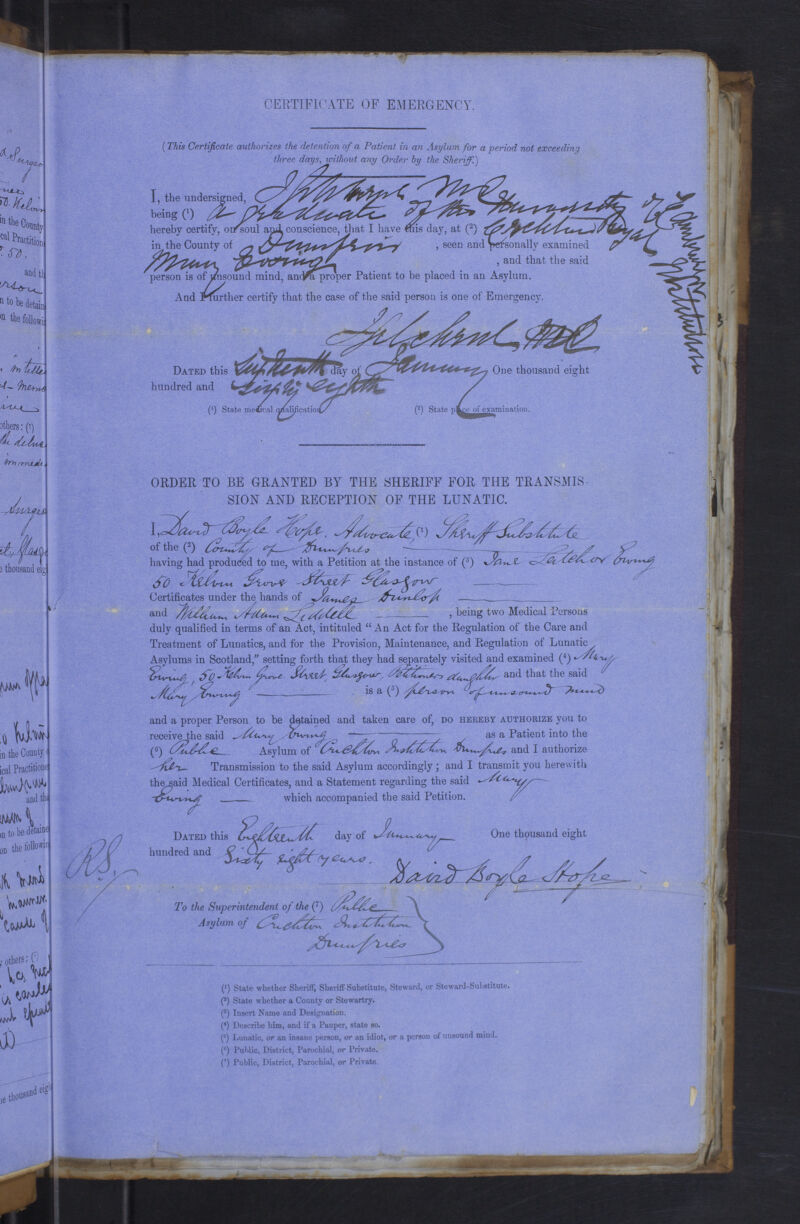 CERTIFICATE OF EMERGENCY.
(This Certificate authorizes the detention of a Patient in an Asylum for a period not exceeding
three days, without any Order by the Sheriff.)
I, the undersigned,
being (¹) a Graduate of the University of Cambridge
hereby certify, on soul and conscience, that I have this day, at (²) Crichton Royal Institution
in the County of Dumfries , seen and personally examined
Mary Ewing , and that the said
person is of unsound mind, and a proper Patient to be placed in an Asylum.
And I further certify that the case of the said person is one of Emergency.
DATED this Sixteenth day of January One thousand eight
hundred and Sixty eighth
(¹) State medical qualification (²) State place of examination.
ORDER TO BE GRANTED BY THE SHERIFF FOR THE TRANSMIS-
SION AND RECEPTION OF THE LUNATIC.
I, David Boyle Hope, Advocate (¹) Sheriff Substitute
of the (²) County of Dumfries
having had produced to me, with a Petition at the instance of (³) Jane or Ewing
50 Kelvin Grove Street Glasgow
Certificates under the hands of James Dunlop
and William Adam Liddell , being two Medical Persons
duly qualified in terms of an Act, intituled "An Act for the Regulation of the Care and
Treatment of Lunatics, and for the Provision, Maintenance, and Regulation of Lunatic
Asylums in Scotland," setting forth that they had separately visited and examined (⁴) Mary
Ewing, 50 Kelvin Grove Street Glasgow Petitioners daughter and that the said
Mary Ewing is a (⁵) person of unsound mind
and a proper Person to be detained and taken care of, DO HEREBY AUTHORIZE you to
receive the said Mary Ewing as a Patient into the
(⁶) Public Asylum of Crichton Institution Dumfries and I authorize
her Transmission to the said Asylum accordingly; and I transmit you herewith
the said Medical Certificates, and a Statement regarding the said Mary
Ewing which accompanied the said Petition.
DATED this Eighteenth day of January One thousand eight
hundred and Sixty eight years.
David Boyle Hope
To the Superintendent of the (⁷) Public
Asylum of Crichton Institution
Dumfries
(¹) State whether Sheriff, Sheriff-Substitute, Steward, or Steward-Substitute.
(²) State whether a County or Stewartry.
(³) Insert Name and Designation.
(⁴) Describe him, and if a Pauper, state so.
(⁵) Lunatic, or an insane person, or an idiot, or a person of unsound mind.
(⁶) Public, District, Parochial, or Private.
(⁷) Public, District, Parochial, or Private.